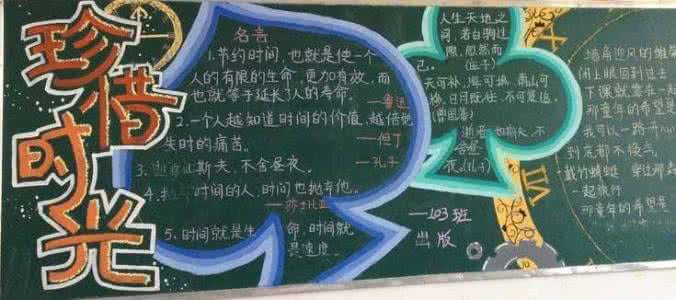 珍惜时光
名言
1.节约时间,也就是使一个
人的有限的生命,更加有效,而
也就等于延长了人的寿命.
—鲁迅
2.一个人越知道时间的价值,越倍觉
失时的痛苦。
—但丁
3、斯夫,不舍昼夜。
—孔子
4、时间的人,时间也抛弃他。
—莎士比亚
5、时间就是生命,时间就
是速度
人生天地之
间,若白驹过
隙,忽然而
已。(庄子)
天可补,海可填,南山可
移,日月既往,不可复追。
(曾国藩)
逝者如斯夫,不
舍昼
夜。(孔子)
—103班
出版
墙角迎风的
闭上眼回到过去
下课就靠在一
那童年的希望是
我可以一路开
到底都不换气
戴竹蜻蜓 穿过那
一起旅行
那童年的希望是